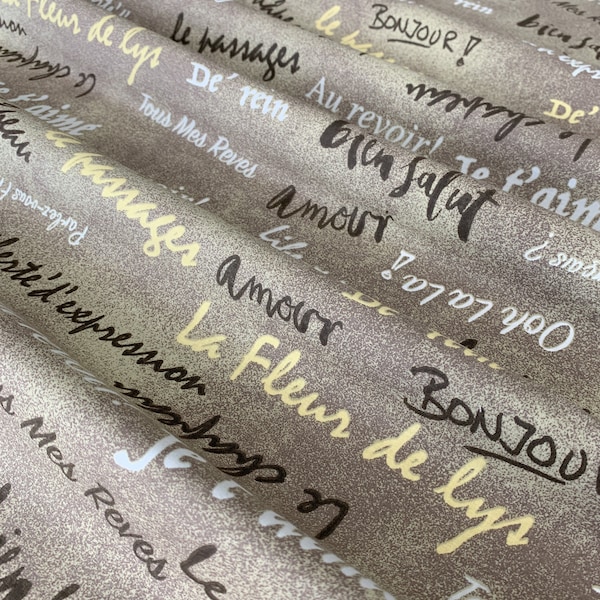 Fleur de lys
le passages
BONJOUR!
bien salut
De' rein
Au revoir!
De'
Tous Mes Reves
bien salut
Je t'aime
t'aime
passages
amour
Parlez-vous
Ooh La La!
amour
d'expression
La Fleur de lys
BONJOU
Le chapeau
Mes Reves
Le